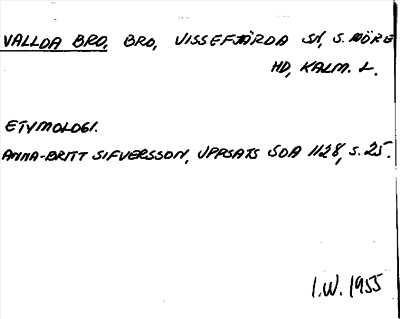 VALLDA BRO, BRO, VISSEFJÄRDA SN, S. MÖRE
HD, KALM. L.
ETYMOLOGI.
ANNA-BRITT SIFVERSSON, UPPSATS SOA 1128, S. 25.
I.W. 1955